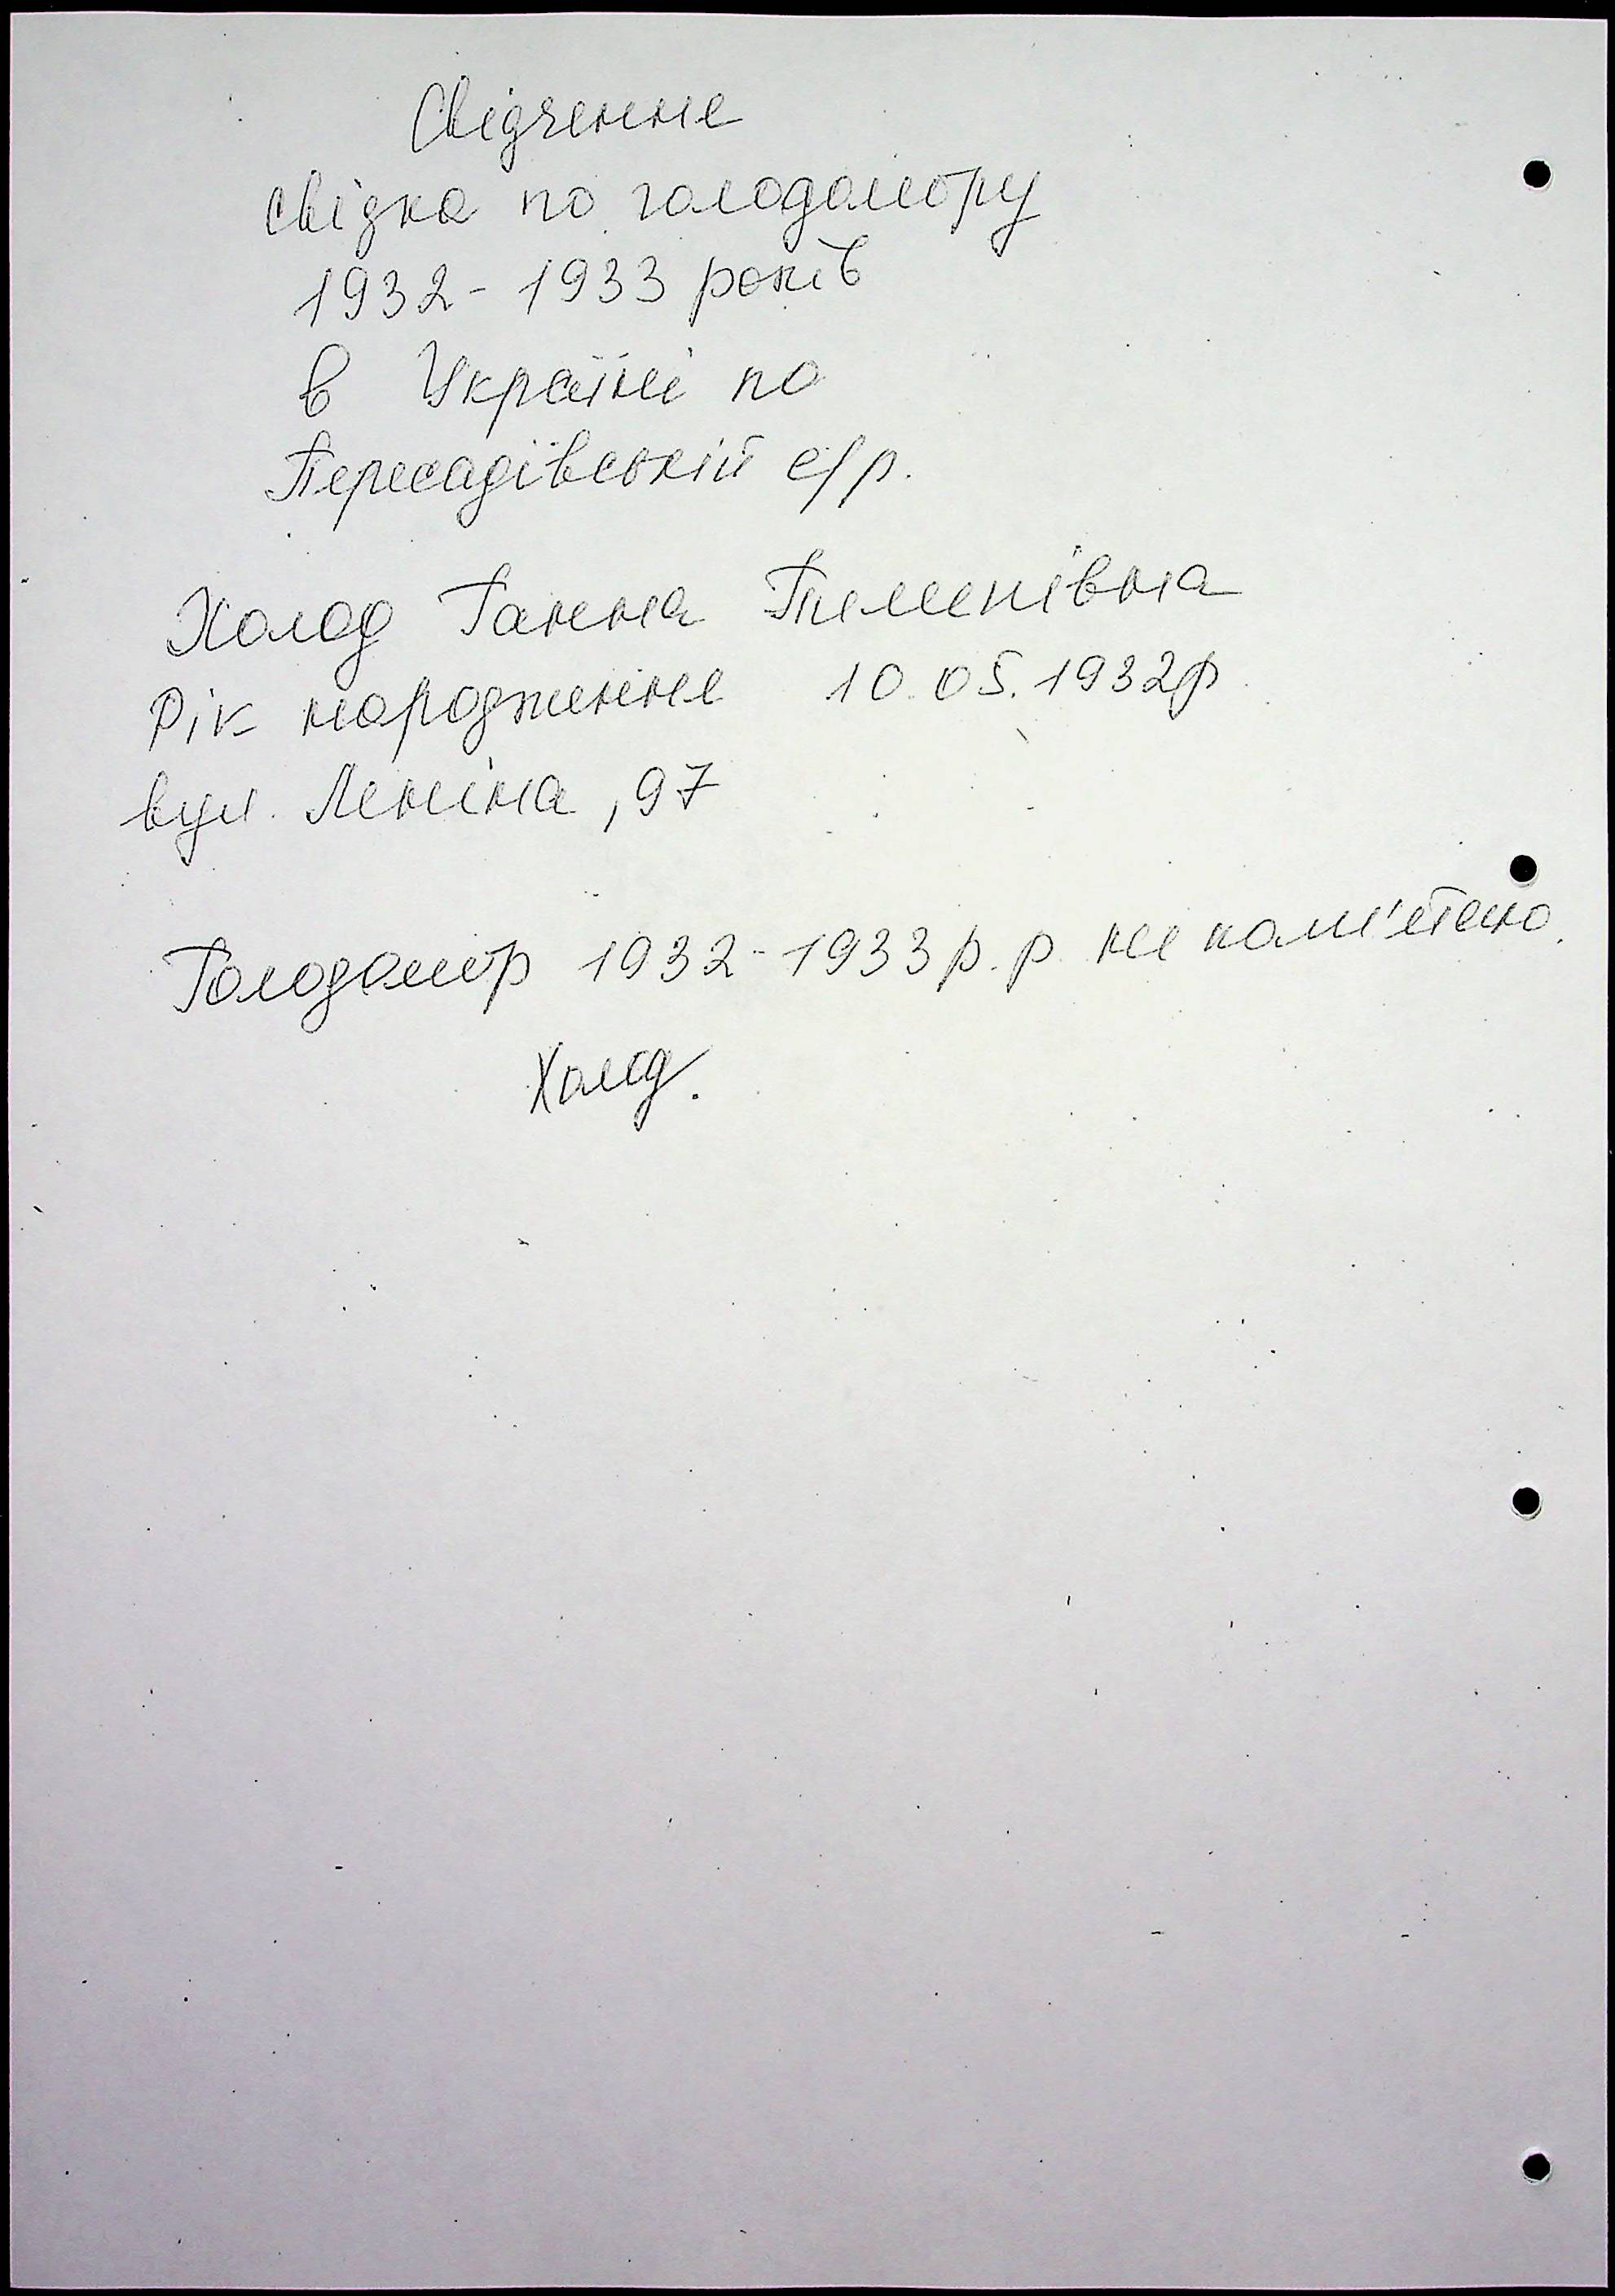 Свідчення
свідка по голодомору
1932-1933 років
в Україні по
Пересадівській с/р.
Холод Ганна Пилипівна
Рік народження 10.05.1932р.
вул. Леніна, 97
Голодомор 1932-1933 р.р. не пам'ятаю.
Холод.